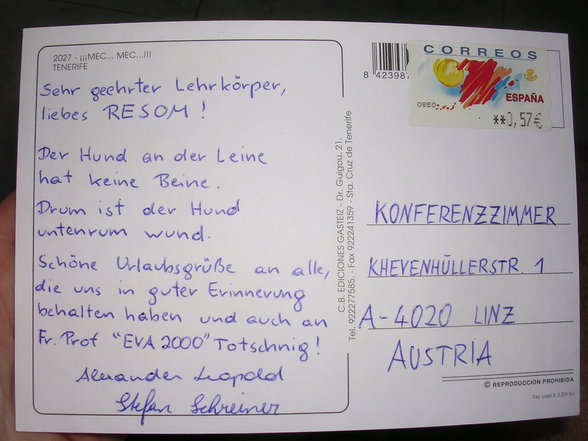 2027 - ¡¡¡MEC... MEC...!!!
TENERIFE
Sehr geehrter Lehrkörper,
liebes RESOM !
Der Hund an der Leine
hat keine Beine.
Drum ist der Hund
untenrum wund.
Schöne Urlaubsgrüße an alle,
die uns in guter Erinnerung
behalten haben und auch an
Fr. Prof "EVA 2000" Totschnig!
Alexander Leopold
Stefan Schreiner
C.B. EDICIONES GASTEIZ - Dr. Guigou, 21.
Tel. 922277585. - Fax 922241359 - Sta. Cruz de Tenerife
8 423987
CORREOS
ESPAÑA
0850
**0,57€
KONFERENZZIMMER
KHEVENHÜLLERSTR. 1
A-4020 LINZ
AUSTRIA
© REPRODUCCION PROHIBIDA
Dep. Legal B.